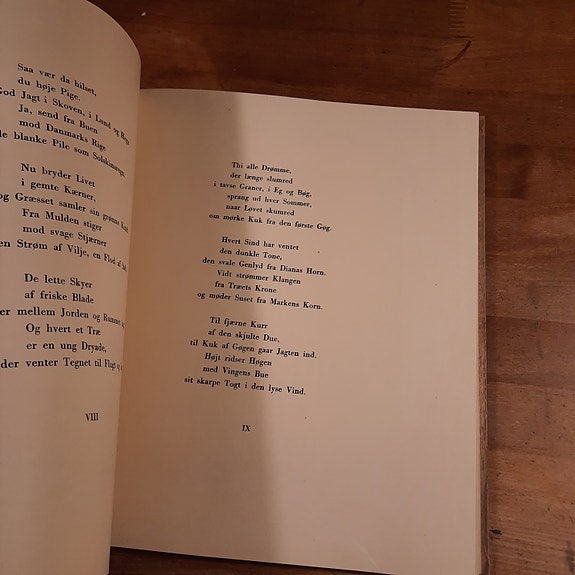 Saa vær da hilset,
du høje Pige.
God Jagt i Skoven, i Land og
Ja, send fra Buen
mod Danmarks Rige
blanke Pile som
Nu bryder Livet
i gemte Kærner,
og Græsset samler sin grønne
Fra Mulden stiger
mod svage Stjærner
en Strøm af Vilje, en Flod af
De lette Skyer
af friske Blade
mellem Jorden og Rummet
Og hvert et Træ
er en ung Dryade,
der venter Tegnet til Flugt og
VIII
Thi alle Drømme,
der længe slumred
i tavse Graner, i Eg og Bøg,
sprang ud hver Sommer,
naar Løvet skumred
om mørke Kuk fra den første Gøg.
Hvert Sind har ventet
den dunkle Tone,
den svale Genlyd fra Dianas Horn.
Vidt strømmer Klangen
fra Træets Krone
og møder Suset fra Markens Korn.
Til fjærne Kurr
af den skjulte Due,
til Kuk af Gøgen gaar Jagten ind.
Højt ridser Høgen
med Vingens Bue
sit skarpe Togt i den lyse Vind.
IX